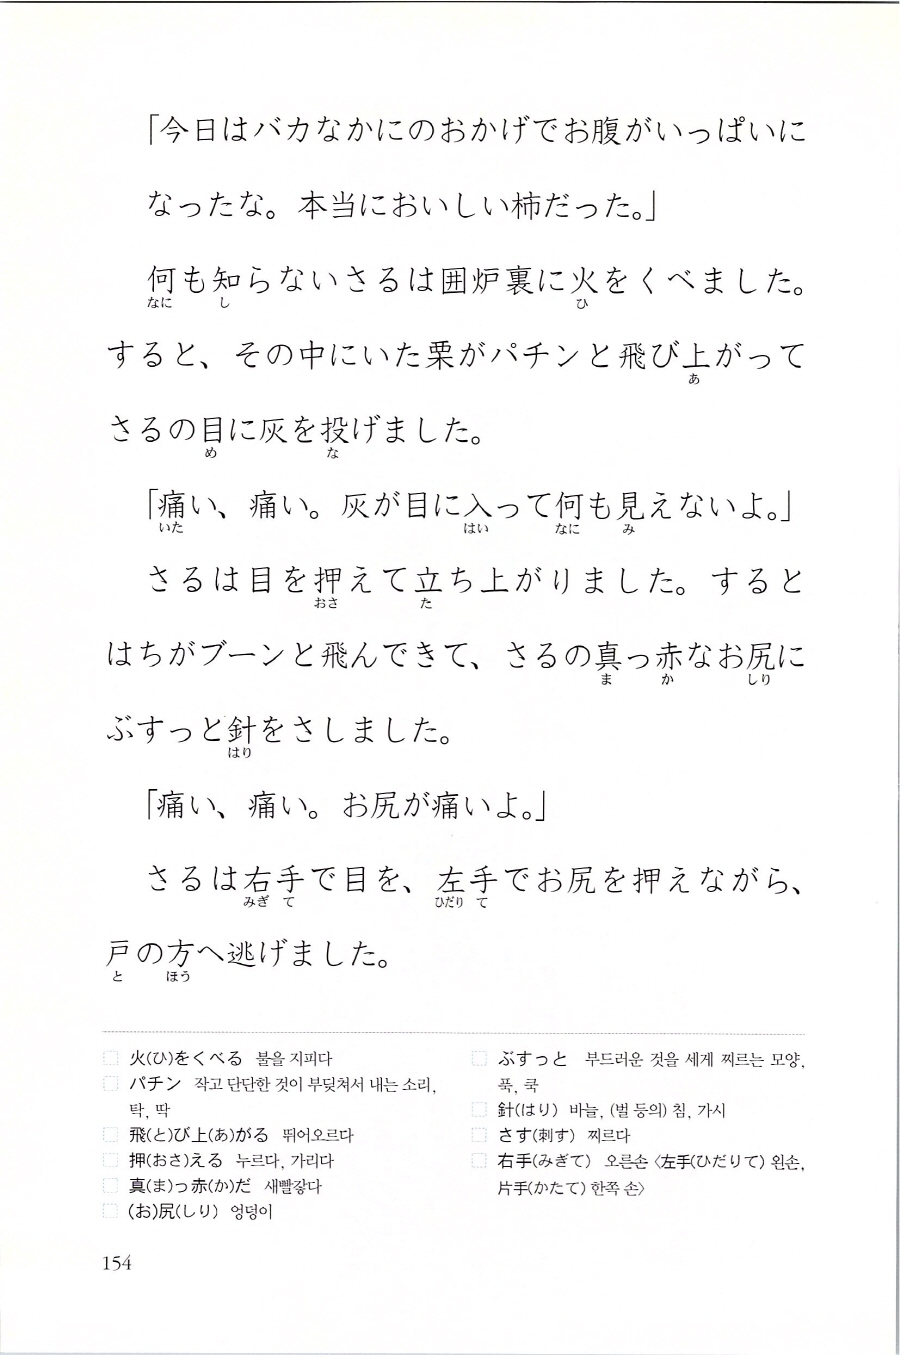 「今日はバカなかにのおかげでお腹がいっぱいに
なったな。本当においしい柿だった。」
何も知らないさるは囲炉裏に火をくべました。
なに し ひ
すると、その中にいた栗がパチンと飛び上がって
あ
さるの目に灰を投げました。
め な
「痛い、痛い。灰が目に入って何も見えないよ。」
いた はい なに み
さるは目を押えて立ち上がりました。すると
おさ た
はちがブーンと飛んできて、さるの真っ赤なお尻に
ま か しり
ぶすっと針をさしました。
はり
「痛い、痛い。お尻が痛いよ。」
さるは右手で目を、左手でお尻を押えながら、
みぎ て ひだり て
戸の方へ逃げました。
と ほう
火(ひ)をくべる 불을 지피다
パチン 작고 단단한 것이 부딪쳐서 내는 소리,
탁, 딱
飛(と)び上(あ)がる 뛰어오르다
押(おさ)える 누르다, 가리다
真(ま)っ赤(か)だ 새빨갛다
(お)尻(しり) 엉덩이
ぶすっと 부드러운 것을 세게 찌르는 모양,
푹, 쿡
針(はり) 바늘, (벌 등의) 침, 가시
さす(刺す) 찌르다
右手(みぎて) 오른손 〈左手(ひだりて) 왼손,
片手(かたて) 한쪽 손〉
154